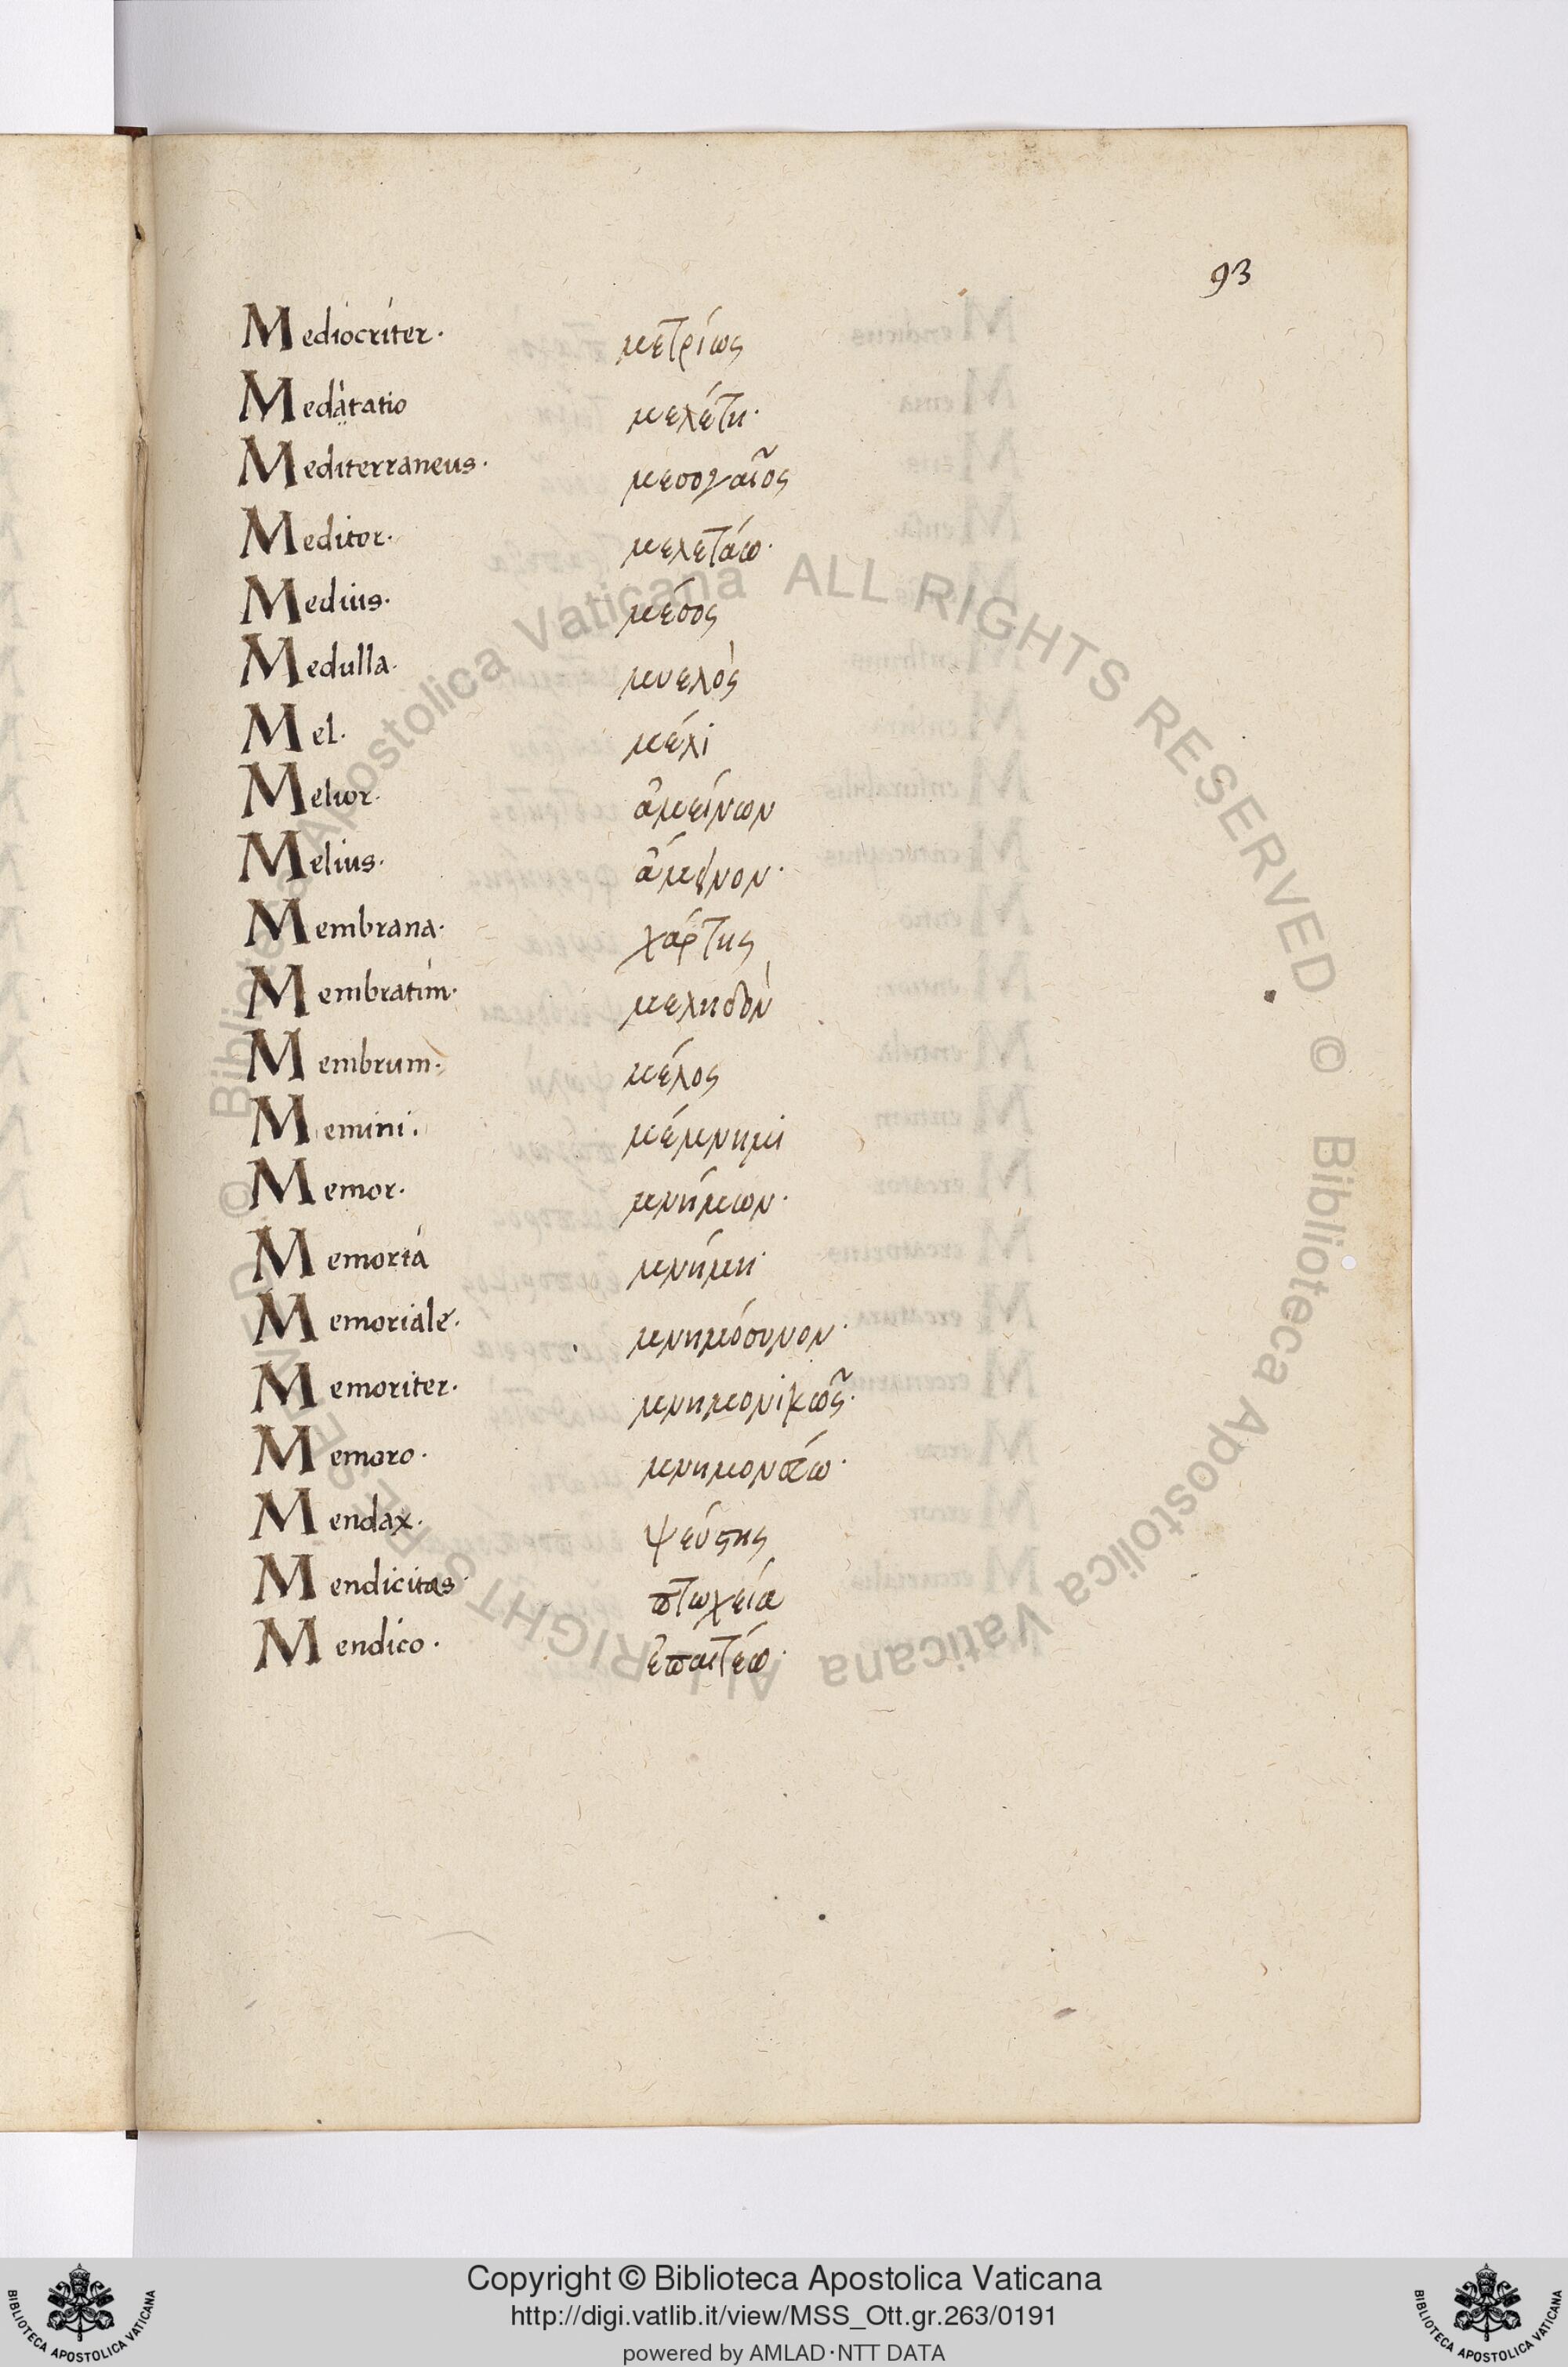 93
Mediocriter· μετρίως
Meditatio μελέτη·
Mediterraneus· μεσογαῖος
Meditor· μελετάω·
Medius· μέσος
Medulla· μυελὸς
Mel· μέλι
Melior· ἀμείνων
Melius· ἄμεινον·
Membrana· χάρτης
Membratim· μεληδὸν
Membrum· μέλος
Memini· μέμνημι
Memor· μνήμων·
Memoria μνήμη·
Memoriale· μνημόσυνον·
Memoriter· μνημονικῶς·
Memoro· μνημονέω·
Mendax· ψεύστης
Mendicitas· πτωχεία
Mendico· ἐπαιτέω·
© Biblioteca Apostolica Vaticana ALL RIGHTS RESERVED © Biblioteca Apostolica Vaticana ALL RIGHTS RESERVED
Copyright © Biblioteca Apostolica Vaticana
http://digi.vatlib.it/view/MSS_Ott.gr.263/0191
powered by AMLAD·NTT DATA
BIBLIOTECA APOSTOLICA VATICANA
BIBLIOTECA APOSTOLICA VATICANA